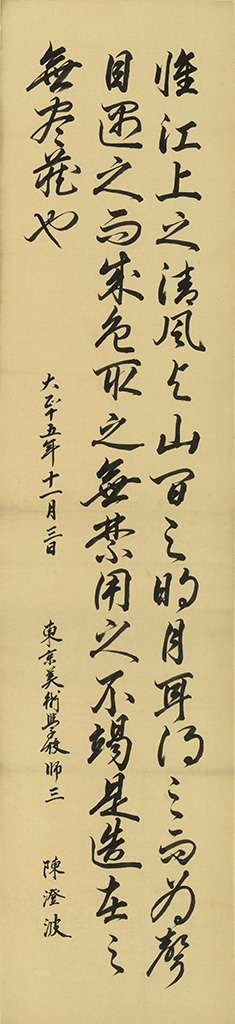 惟江上之清風与山間之明月耳得之而為聲
目遇之而成色取之無禁用之不竭是造在之
無尽蔵也
大正十五年十一月三日 東京美術學校師三 陳澄波